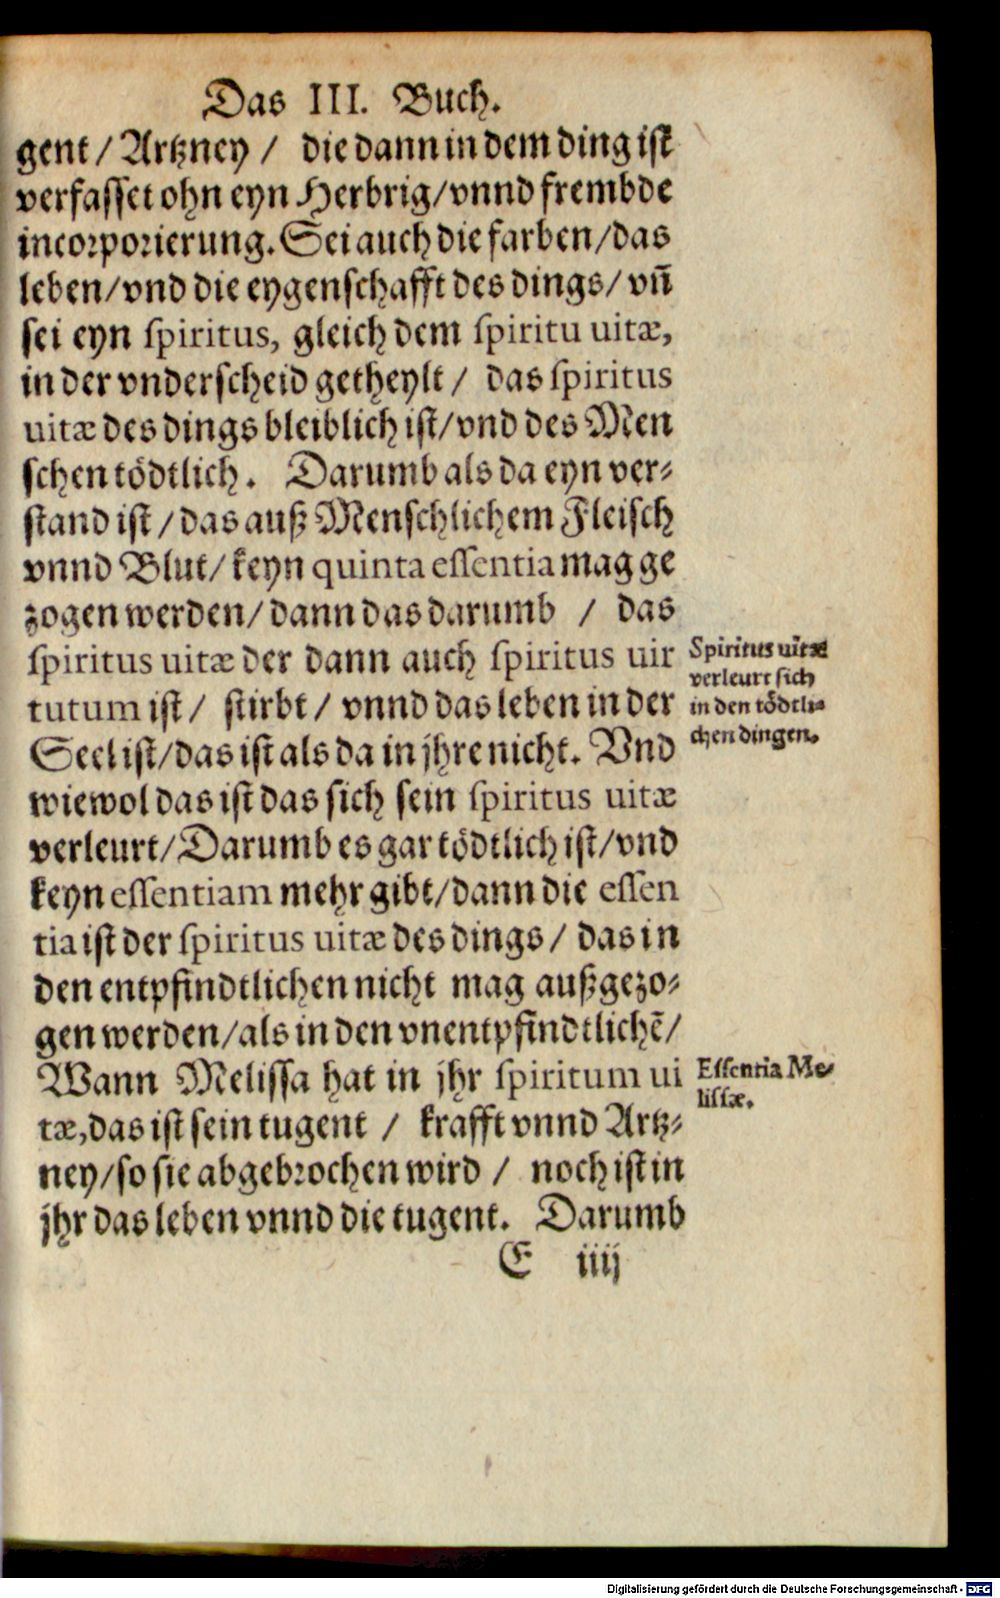 Das III. Buch.
gent / Artzney / die dann in dem ding ist
verfasset ohn eyn Herbrig / vnnd frembde
incorporierung. Sei auch die farben / das
leben / vnd die eygenschafft des dings / vñ
sei eyn spiritus, gleich dem spiritu uitæ,
in der vnderscheid getheylt / das spiritus
uitæ des dings bleiblich ist / vnd des Men
schen tödtlich. Darumb als da eyn ver-
stand ist / das auß Menschlichem Fleisch
vnnd Blut / keyn quinta essentia mag ge
zogen werden / dann das darumb / das
spiritus uitæ der dann auch spiritus uir
tutum ist / stirbt / vnnd das leben in der
Seel ist / das ist als da in jhre nicht. Vnd
wiewol das ist das sich sein spiritus uitæ
verleurt / Darumb es gar tödtlich ist / vnd
keyn essentiam mehr gibt / dann die essen
tia ist der spiritus uitæ des dings / das in
den entpfindtlichen nicht mag außgezo-
gen werden / als in den vnentpfindtlichẽ /
Wann Melissa hat in jhr spiritum ui
tæ, das ist sein tugent / krafft vnnd Artz-
ney / so sie abgebrochen wird / noch ist in
jhr das leben vnnd die tugent. Darumb
E iiij
Spiritus uitæ
verleurt sich
in den tödtli-
chen dingen.
Essentia Me-
lissæ.
Digitalisierung gefördert durch die Deutsche Forschungsgemeinschaft - DFG